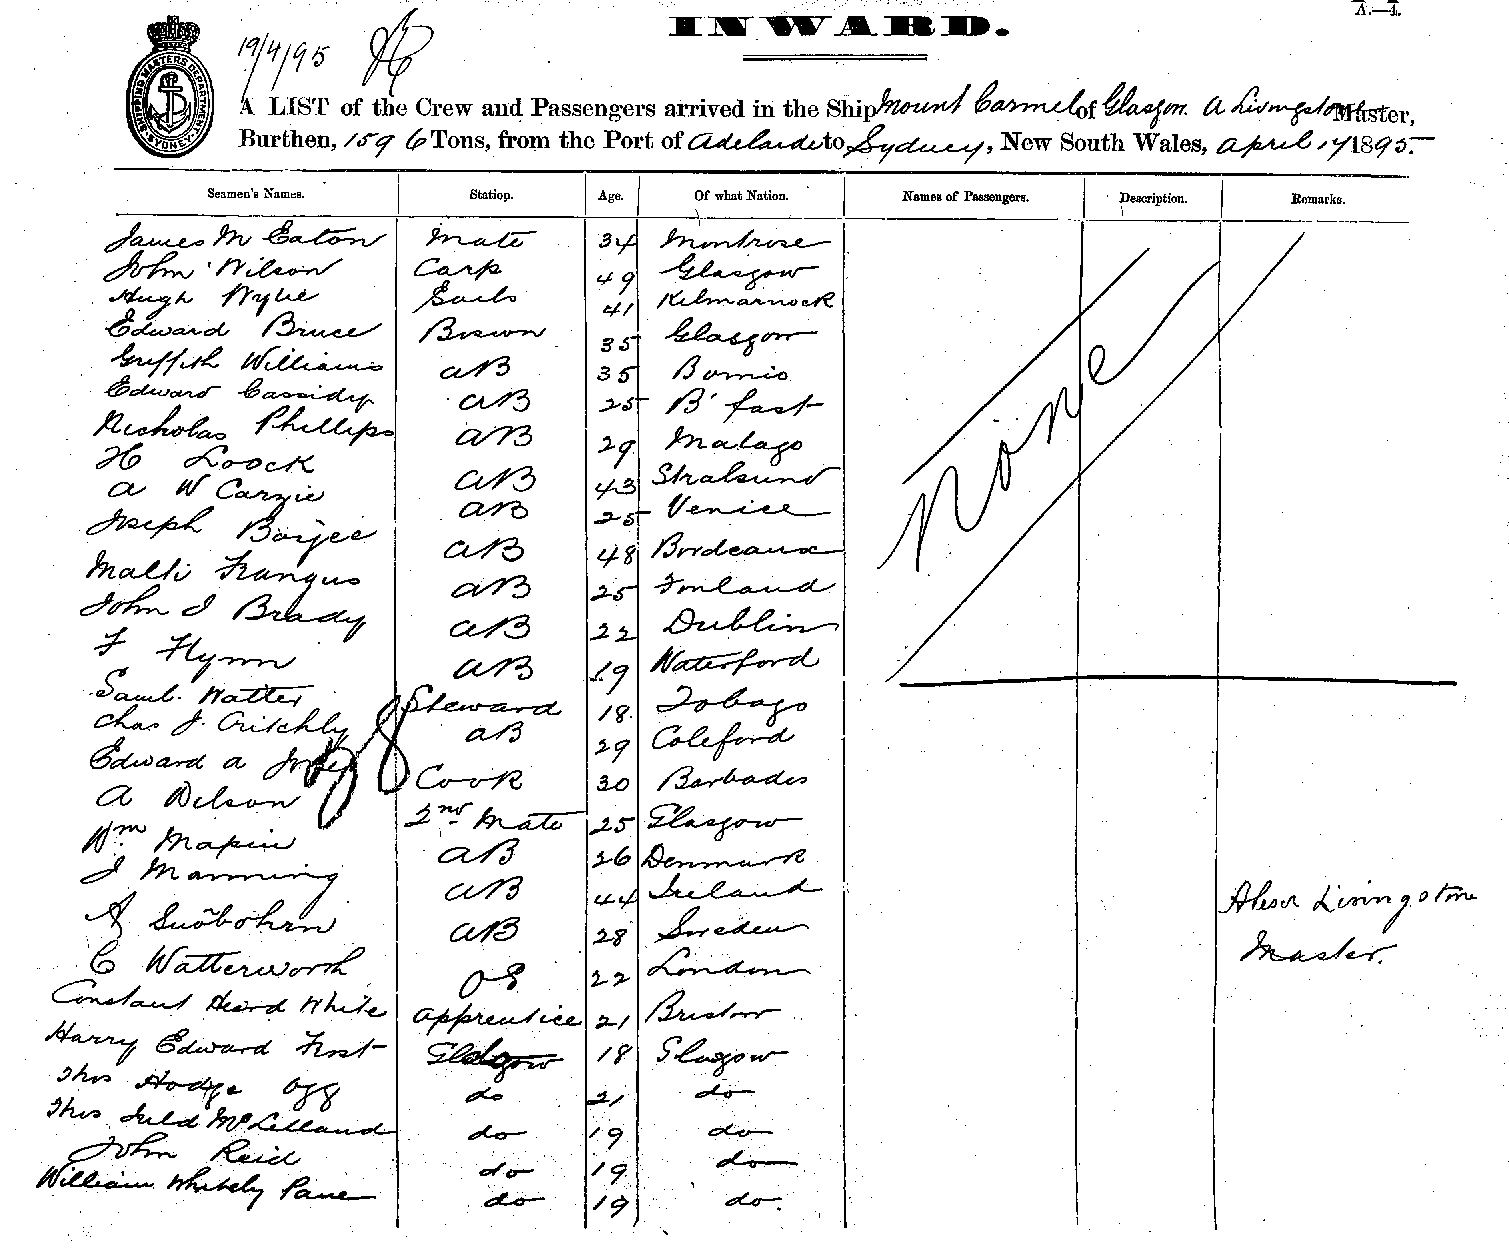 A.—4.
INWARD.
19/4/95
SHIPPING MASTERS DEPARTMENT SYDNEY
A LIST of the Crew and Passengers arrived in the Ship Mount Carmel of Glasgow A Livingstone Master,
Burthen, 1596 Tons, from the Port of Adelaide to Sydney, New South Wales, April 17 1895.
Seamen's Names. Station. Age. Of what Nation. Names of Passengers. Description. Remarks.
James M Eaton Mate 34 Montrose
John Wilson Carp 49 Glasgow
Hugh Wylie Sails 41 Kilmarnock
Edward Bruce Boswn 35 Glasgow
Griffith Williams AB 35 
Edward Cassidy AB 25 B'fast
Nicholas Phillips AB 29 Malago
H Loock AB 43 Stralsund
A W Carzie AB 25 Venice
Joseph AB 48 Bordeaux
Malti Frangus AB 25 Finland
John J Brady AB 22 Dublin
F Flynn AB 19 Waterford
Saml. Watter Steward 18 Tobago
Chas J. Critchly AB 29 Coleford
Edward A Cook 30 Barbados
A Nelson 2nd Mate 25 Glasgow
Wm Mapin AB 26 Denmark
J Manning AB 44 Ireland
A AB 28 Sweden
C Watterworth OS 22 London
Constant Heard White Apprentice 21 Bristow
Harry Edward Frost Glasgow 18 Glasgow
Thos Hodge Ogg do 21 do
Thos Feild McLelland do 19 do
John Reid do 19 do
William Whitely Pane do 19 do.
None
Alexr Livingstone
Master.